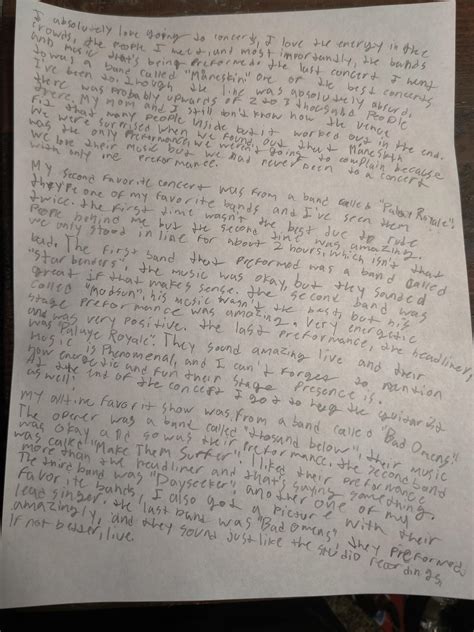 I absolutely love going to concerts, I love the energy in the
crowds, the people I meet, and most importantly, the bands
and music that's being preformed. The last concert I went
to was a band called "Måneskin" one of the best concerts
I've been to. Though the line was absolutely absurd.
there was probably upwards of 2 to 3 thousand people
there. My mom and I still don't know how the venue
fit that many people inside but it worked out in the end.
We were surprised when we found out that Måneskin
was the only preformance, we weren't going to complain because
we love their music but we had never been to a concert
with only one preformance.
My second favorite concert was from a band called "Palaye Royale".
they're one of my favorite bands and I've seen them
twice. the first time wasn't the best due to rude
people behind me but the second time was amazing.
we only stood in line for about 2 hours, which isn't that
bad. The first band that preformed was a band called
"Starbenders", the music was okay, but they sounded
great if that makes sense. the second band was
called "Modsun", his music wasn't the best, but his
stage preformance was amazing. Very energetic
and was very positive. the last preformance, the headliner,
was "Palaye Royale". They sound amazing live and their
music is phenomenal, and I can't forget to mention
how energetic and fun their stage presence is.
At the end of the concert I got to hug the guitarist
as well!
my alltime favorit show was from a band called "Bad Omens"
The opener was a band called "thousand below", their music
was okay and so was their preformance. the second band
was called "Make Them Suffer". I liked their preformance
more than the headliner and that's saying something.
The third band was "Dayseeker", another one of my
favorite bands, I also got a picture with their
lead singer. the last band was "Bad Omens", they preformed
amazingly, and they sound just like the studio recordings,
if not better, live.